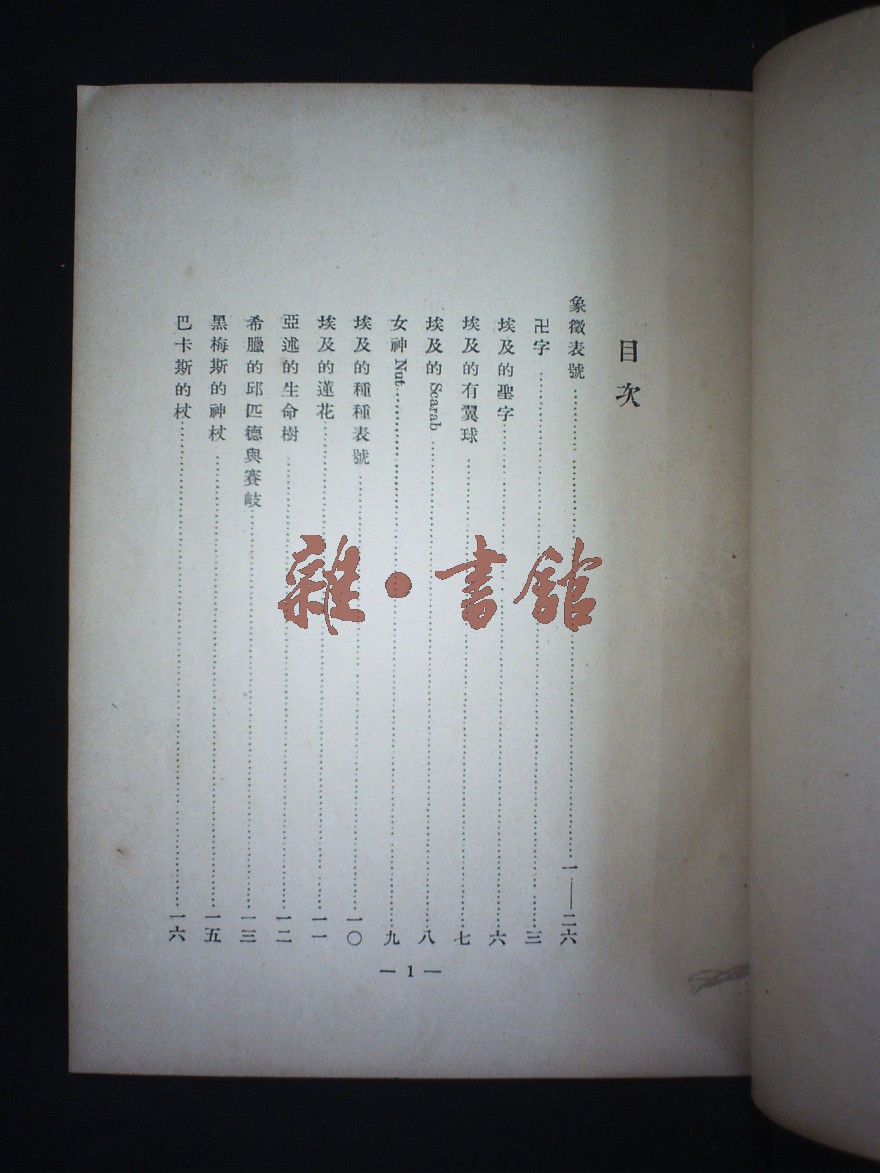 目次
象徵表號……一——二六
卍字……三
埃及的聖字……六
埃及的有翼球……七
埃及的 Scarab……八
女神 Nut……九
埃及的種種表號……一〇
埃及的蓮花……一一
亞述的生命樹……一二
希臘的邱匹德與賽岐……一三
黑梅斯的神杖……一五
巴卡斯的杖……一六
— 1 —
雜·書館